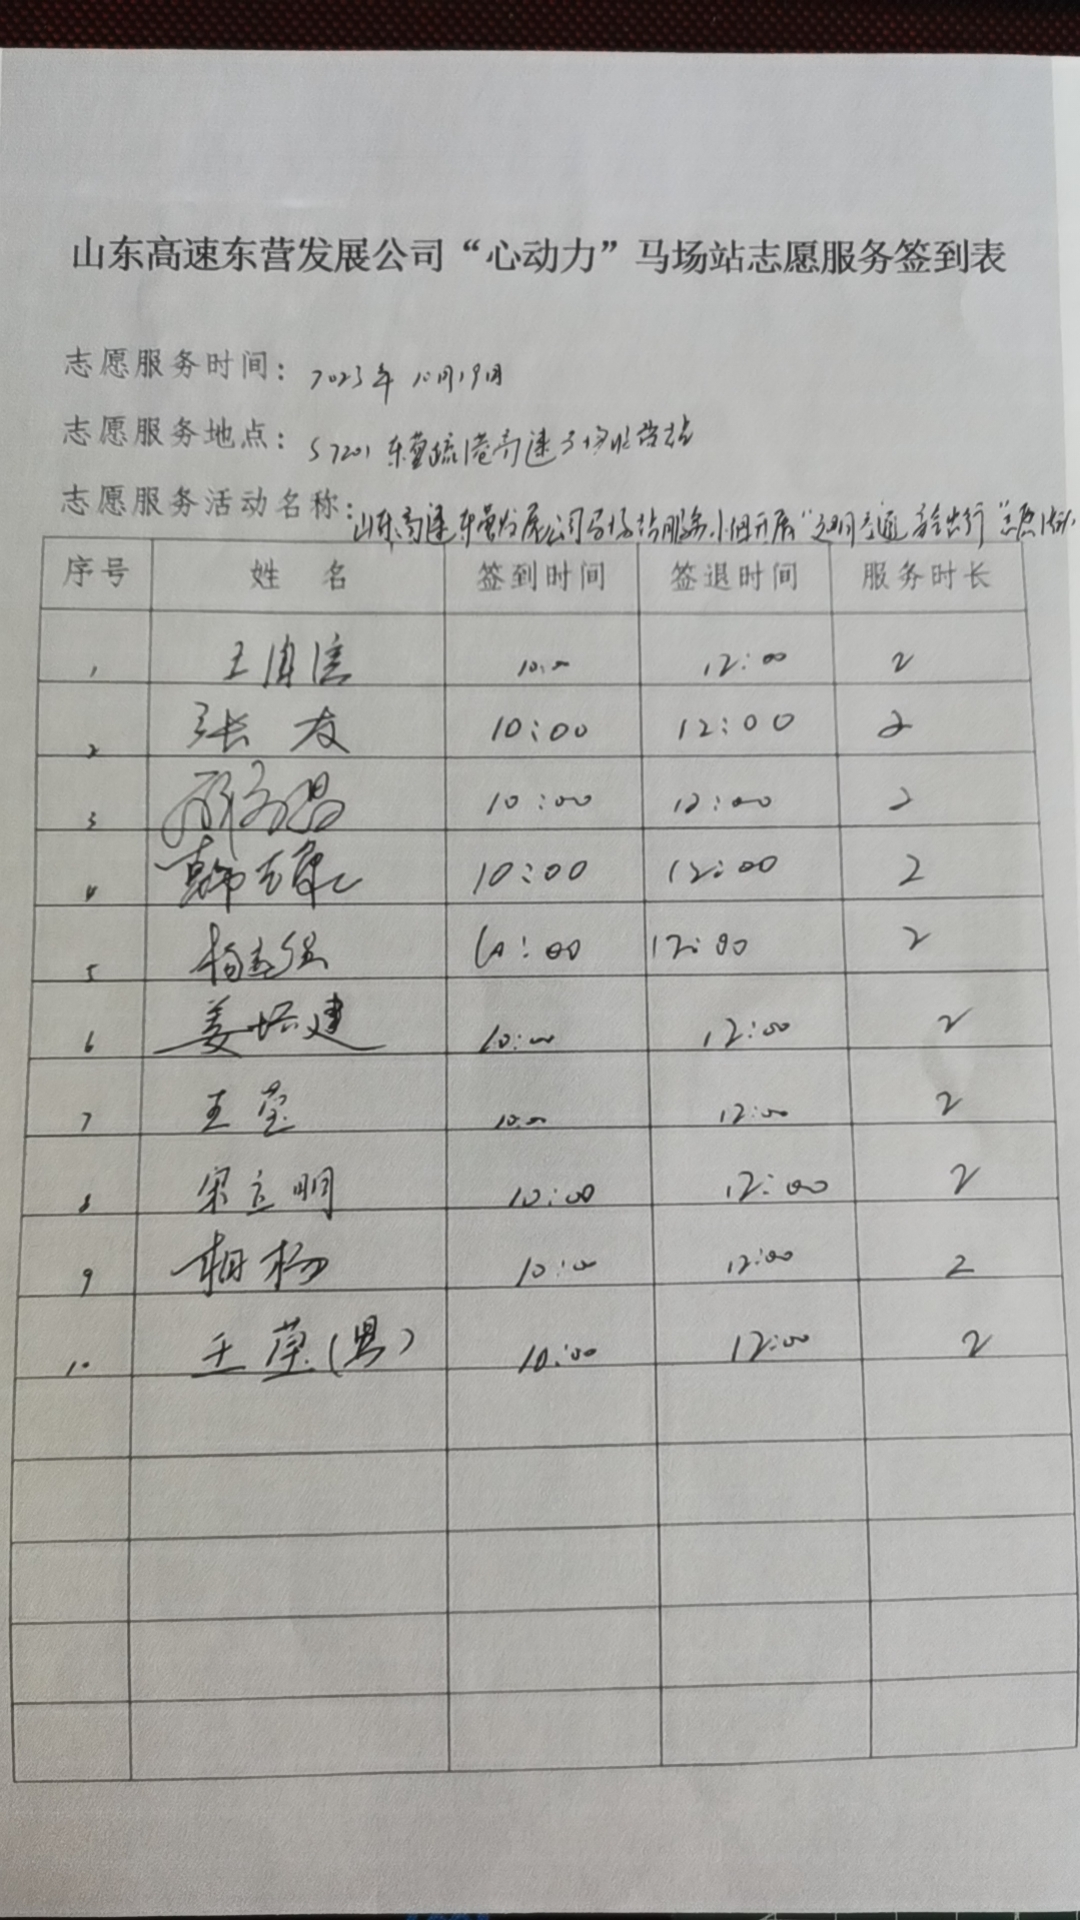 山东高速东营发展公司“心动力”马场站志愿服务签到表
志愿服务时间：2023年10月19日
志愿服务地点：S7201东营疏港高速马场收费站
志愿服务活动名称：山东高速东营发展公司马场站服务小组开展“文明交通,安全出行”志愿活动
序号 姓 名 签到时间 签退时间 服务时长
1 王 10:00 12:00 2
2 张友 10:00 12:00 2
3 10:00 12:00 2
4 韩 10:00 12:00 2
5 杨 10:00 12:00 2
6 姜培建 10:00 12:00 2
7 王莹 10:00 12:00 2
8 宋立明 10:00 12:00 2
9 相杨 10:00 12:00 2
10 王莹(男) 10:00 12:00 2